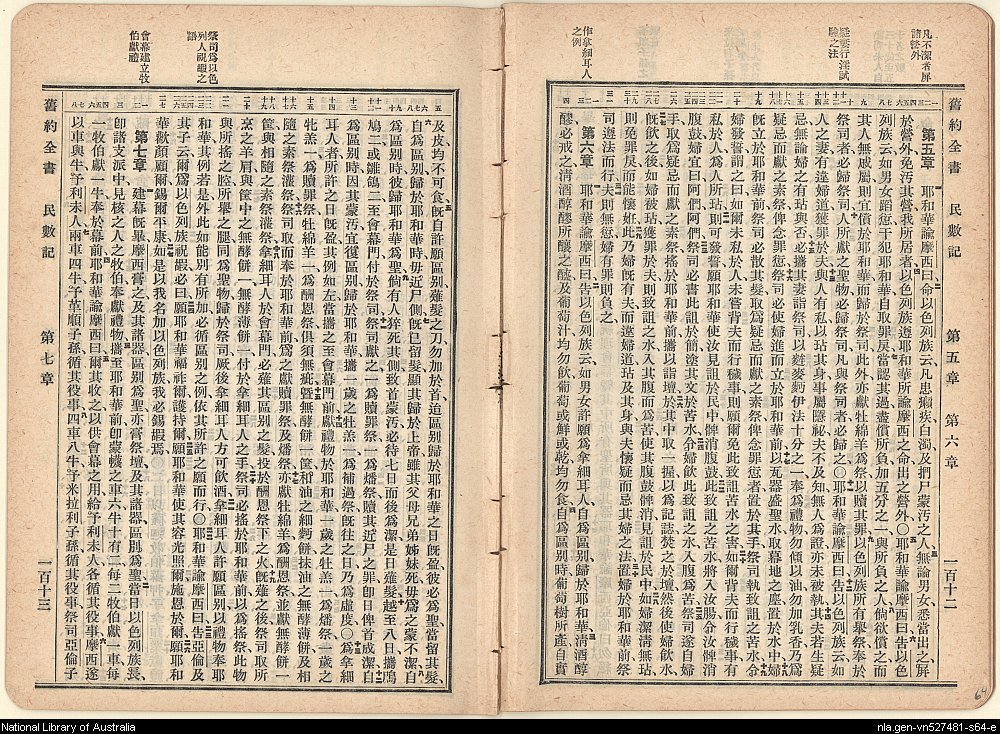 凡不潔者屏
諸營外
疑妻行淫試
驗之法
作拿細耳人
之例
舊約全書 民數記 第五章 第六章 一百十二
第五章 耶和華諭摩西曰命以色列族云凡患癩疾白濁及捫尸蒙污之人無論男女悉當出之屏
於營外免污其營我所居者以色列族遵耶和華所諭摩西之命出之營外〇耶和華諭摩西曰告以色
列族云如男女蹈愆干犯耶和華自取罪戾當認其過盡償所負加五分之一與所負之人倘欲償之而
其人無戚屬則宜償於耶和華而歸於祭司此外亦獻牡綿羊爲祭以贖其罪以色列族所有舉祭奉於
祭司者必歸祭司凡人所獻之聖物必歸祭司凡與祭司者必歸之〇耶和華諭摩西曰告以色列族云如
人之妻有違婦道獲罪於夫與人有私以玷其身事屬隱秘夫不及知無人爲證亦未被執其夫若生疑
忌無論婦之有玷與否必攜其妻詣祭司以麰麥麪伊法十分之一率爲禮物勿傾以油勿加乳香乃爲
疑忌而獻之素祭俾念罪愆祭司必使婦進而立於耶和華前以瓦器盛聖水取幕地之塵置於水中婦
既立於耶和華前祭司必散其髮取爲疑忌而獻之素祭俾念罪愆者置於其手祭司執致詛之苦水令
婦發誓謂之曰如爾未私於人未嘗背夫而行穢事則願爾免此致詛苦水之害如爾背夫而行穢事有
私於人爲人所玷則可發誓願耶和華使汝見詛於民中髀消腹鼓此致詛之苦水將入汝腸令汝髀消
腹鼓婦當曰阿們阿們祭司必書此詛於簡塗其文於苦水令婦飲此致詛之水入其腹爲苦祭司遂自婦
手取其爲疑忌而獻之素祭搖於耶和華前攜以詣壇於其中取一握以爲記誌焚之於壇然後使婦飲水
既飲之後如婦被玷獲罪於夫則致詛之水入其腹而爲苦使其腹鼓髀消見詛於民中如婦潔淸無玷
則免罪戾而能懷妊此乃婦既有夫而違婦道玷及其身與夫懷疑而忌其婦之法當置婦於耶和華前祭
司遵法而行夫則無愆婦有罪則負之
第六章 耶和華諭摩西曰告以色列族云如男女許願爲拿細耳人自爲區別歸於耶和華淸酒醇
醪必戒之淸酒醇醪所釀之醯及葡萄汁均勿飲葡萄或鮮或乾均勿食自爲區別時葡萄樹所產自實
祭司爲以色
列人祝嘏之
語
會幕建立牧
伯獻禮
及皮均不可食既自許願區別薙髮之刀勿加於首迨區別歸於耶和華之日既盈彼必爲聖當留其髮
自爲區別歸於耶和華時毋近尸側既已留髮顯其歸於上帝雖其父母兄弟姊妹死毋爲之蒙不潔自
爲區別時彼歸耶和華爲聖倘有人猝死其側致首蒙污必待七日而後爲潔是日薙髮越至八日攜鳲
鳩二或雛鴿二至會幕門付於祭司祭司獻之一爲贖罪祭一爲燔祭贖其近尸之罪卽日俾首成潔自
爲區別時因其蒙污宜復區別歸於耶和華攜一歲之牡羔一爲補過祭既往之日乃爲虛度〇爲拿細
耳人者所許之日既盈其例如左當攜之至會幕門前獻禮物於耶和華一歲之牡羔一爲燔祭一歲之
牝羔一爲贖罪祭牡綿羊一爲酬恩祭俱須無疵曁無酵餅一筐和油之細麪餅抹油之無酵餅及相
隨之素祭灌祭祭司取而奉於耶和華前爲之獻贖罪祭及燔祭亦獻牡綿羊爲酬恩祭並獻無酵餅一
筐與相隨之素祭灌祭拿細耳人於會幕門必薙其區別之髮投於酬恩祭下之火既薙之後祭司取所
烹之羊肩與筐中之無酵餅一無酵薄餅一付於拿細耳人之手祭司必搖於耶和華前以爲搖祭此物
與所搖之膺所舉之腿同爲聖物歸於祭司厥後拿細耳人方可飲酒拿細耳人許願區別以禮物奉耶
和華其例若是外此如能別有所加必循區別之例依其所許之願而行〇耶和華諭摩西曰告亞倫及
其子云爾爲以色列族祝嘏必曰願耶和華福祚爾護持爾願耶和華使其容光照爾施恩於爾願耶和
華獻顏顧爾錫爾平康如是以我名加以色列族我必錫嘏焉
第七章 建幕既畢摩西膏之及其諸器區別爲聖亦膏祭壇及其諸器區別爲聖當日以色列族長
卽諸支派中見核之人之牧伯奉獻禮物攜至耶和華前卽蒙幭之車六牛十有二每二牧伯獻一車每
一牧伯獻一牛奉於幕前耶和華諭摩西曰爾其收之以供會幕之用給予利未人各循其役事摩西遂
以車與牛予利未人兩車四牛予革順子孫循其役事四車八牛予米拉利子孫循其役事祭司亞倫子
舊約全書 民數記 第七章 一百十三
64
National Library of Australia
nla.gen-vn527481-s64-e